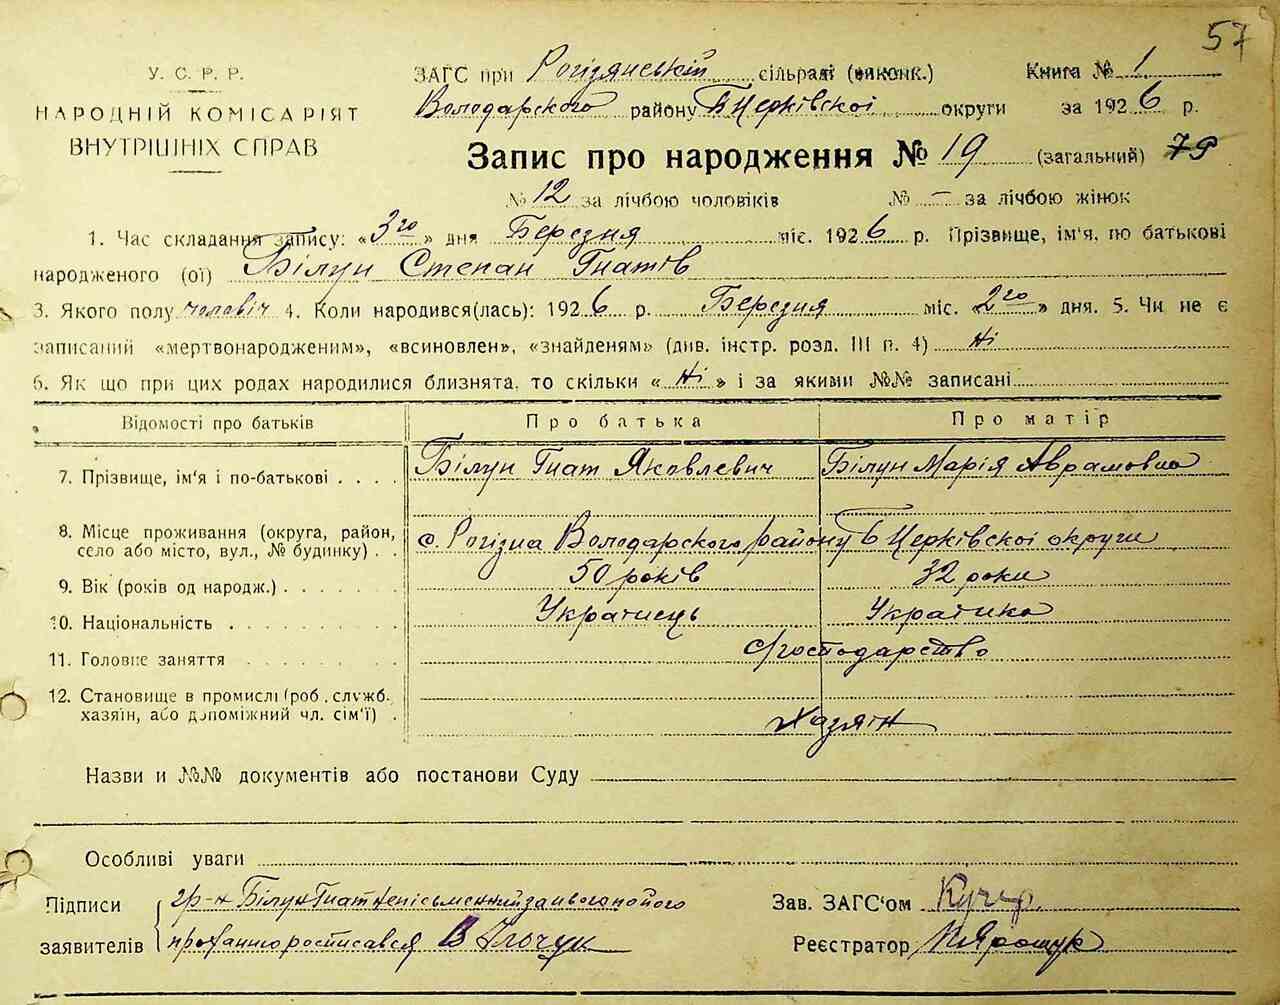 57
У. С. Р. Р.
НАРОДНІЙ КОМІСАРІЯТ
ВНУТРІШНІХ СПРАВ
ЗАГС при Рогізянській сільраді (виконк.) Книга № 1
Володарского району БЦерківскоі округи за 1926 р.
Запис про народження № 19 (загальний) 79
№ 12 за лічбою чоловіків № – за лічбою жінок
1. Час складання запису: «3го» дня Березня міс. 1926 р. Прізвище, ім'я, по батькові
народженого (ої) Білун Степан Гнатів
3. Якого полу чоловіч 4. Коли народився(лась): 1926 р. Березня міс. «2го» дня. 5. Чи не є
записаний «мертвонародженим», «всиновлен», «знайденям» (див. інстр. розд. III п. 4) Ні
6. Як що при цих родах народилися близнята, то скільки «Ні» і за якими №№ записані
Відомості про батьків Про батька Про матір
7. Прізвище, ім'я і по-батькові . . . . Білун Гнат Яковлевич Білун Марія Аврамовна
8. Місце проживання (округа, район,
село або місто, вул., № будинку) . . с. Рогізна Володарского району БЦерківскоі округи
9. Вік (років од народж.) . . . . . . . 50 років 32 роки
10. Національність . . . . . . . . . Украінець Украінка
11. Головне заняття . . . . . . . . С/господарство
12. Становище в промислі (роб., служб.
хазяїн, або допоміжний чл. сім'ї) . Хазяін
Назви и №№ документів або постанови Суду
Особливі уваги
Підписи гр-н Білун Гнат неписьменний за нього по його Зав. ЗАГС'ом Кучер
заявителів проханню росписався В Ільчук Реєстратор Ярощук